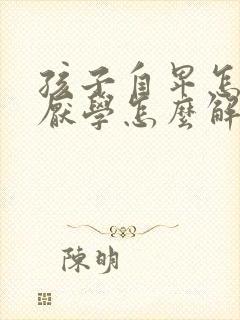 孩子自卑怎
厭學怎麼解
陳明